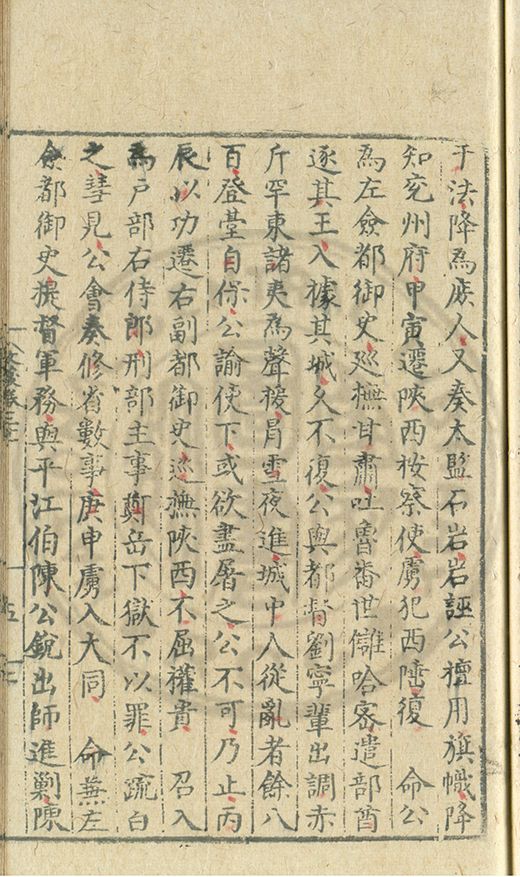 于法降為庶人又奏太監石岩岩誣公擅用旗幟降
知兖州府甲寅遷陝西按察使虜犯西陲復　命公
為左僉都御史巡撫甘肅吐魯番世讎哈密遣部酋
逐其王入據其城久不復公與都督劉寧輩出調赤
斤罕東諸夷為聲援冐雪夜進城中人從亂者餘八
百登臺自保公諭使下或欲盡屠之公不可乃止丙
辰以功遷右副都御史巡撫陝西不屈權貴　召入
為戶部右侍郎刑部主事鄭岳下獄不以罪公疏白
之彗見公會奏修省數事庚申虜入大同　命兼左
僉都御史提督軍務與平江伯陳公銳出師進剿陳